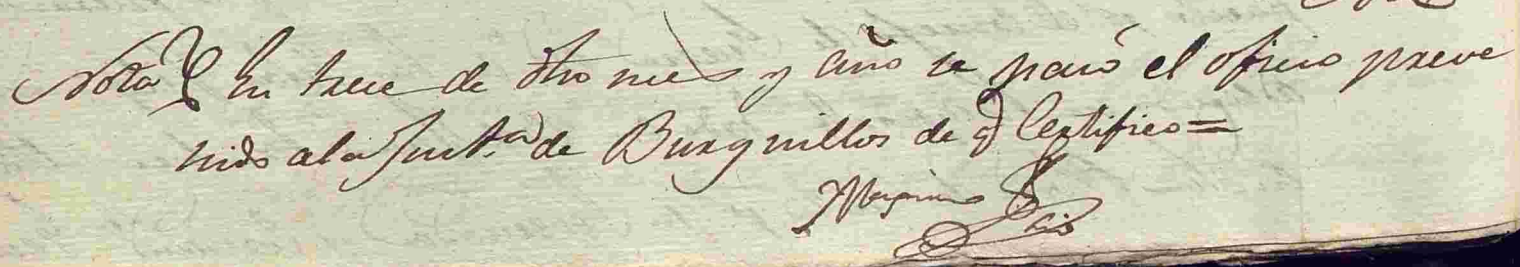 Nota En trece de dho mes y año se pasó el oficio preve
nido a la Just.ª de Burguillos de q Certifico =